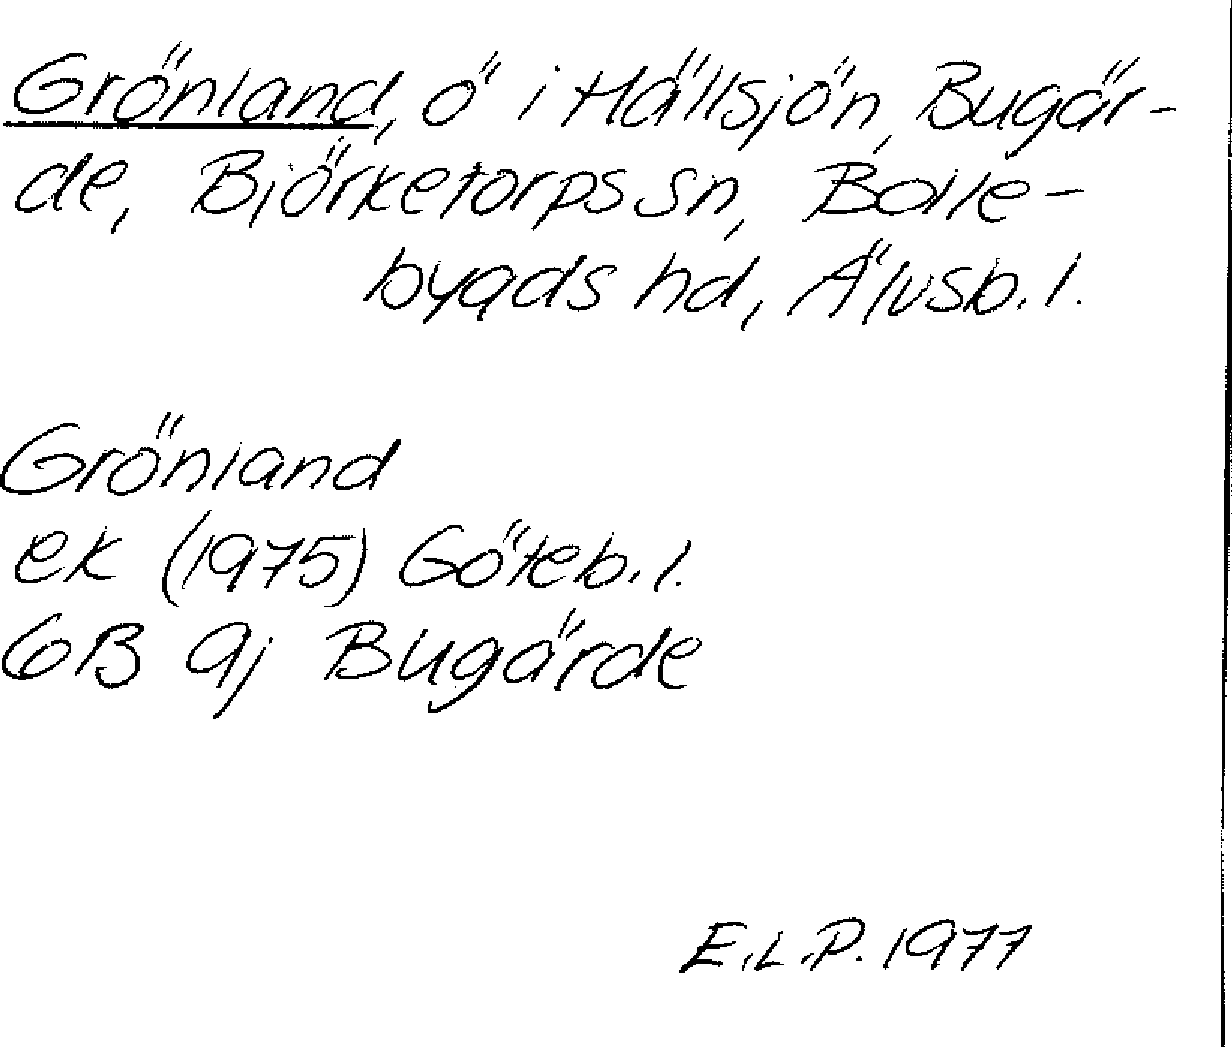 Grönland, ö i Hällsjön, Bugär-
de, Björketorps sn, Bolle-
bygds hd, Älvsb. l.
Grönland
ek (1975) Göteb. l.
6B 9j Bugärde
E.L.P. 1977